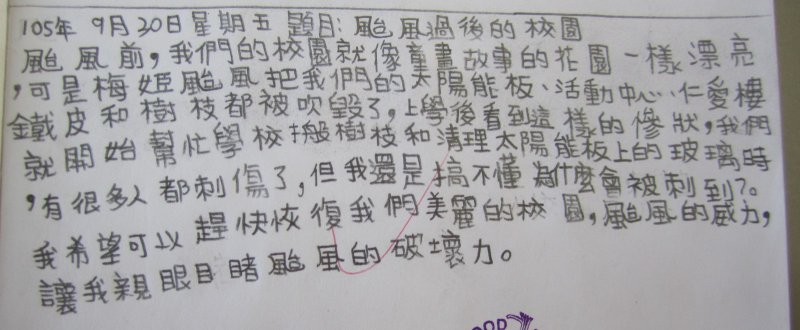 105年 9月30日星期五 題目:颱風過後的校園
颱風前,我們的校園就像童畫故事的花園一樣漂亮
,可是梅姬颱風把我們的太陽能板、活動中心、仁愛樓
鐵皮和樹枝都被吹毀了,上學後看到這樣的慘狀,我們
就開始幫忙學校搬樹枝和清理太陽能板上的玻璃時
,有很多人都刺傷了,但我還是搞不懂為什麼會被刺到?。
我希望可以趕快恢復我們美麗的校園,颱風的威力,
讓我親眼目睹颱風的破壞力。